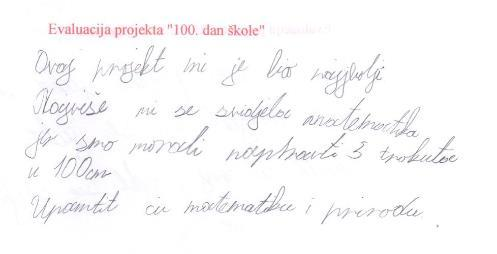 Evaluacija projekta "100. dan škole"
Ovaj projekt mi je bio najbolji
Najviše mi se svidjela matematika
jer smo morali napraviti 3 trokuta
u 100cm
Upamtit ću matematiku i prirodu.